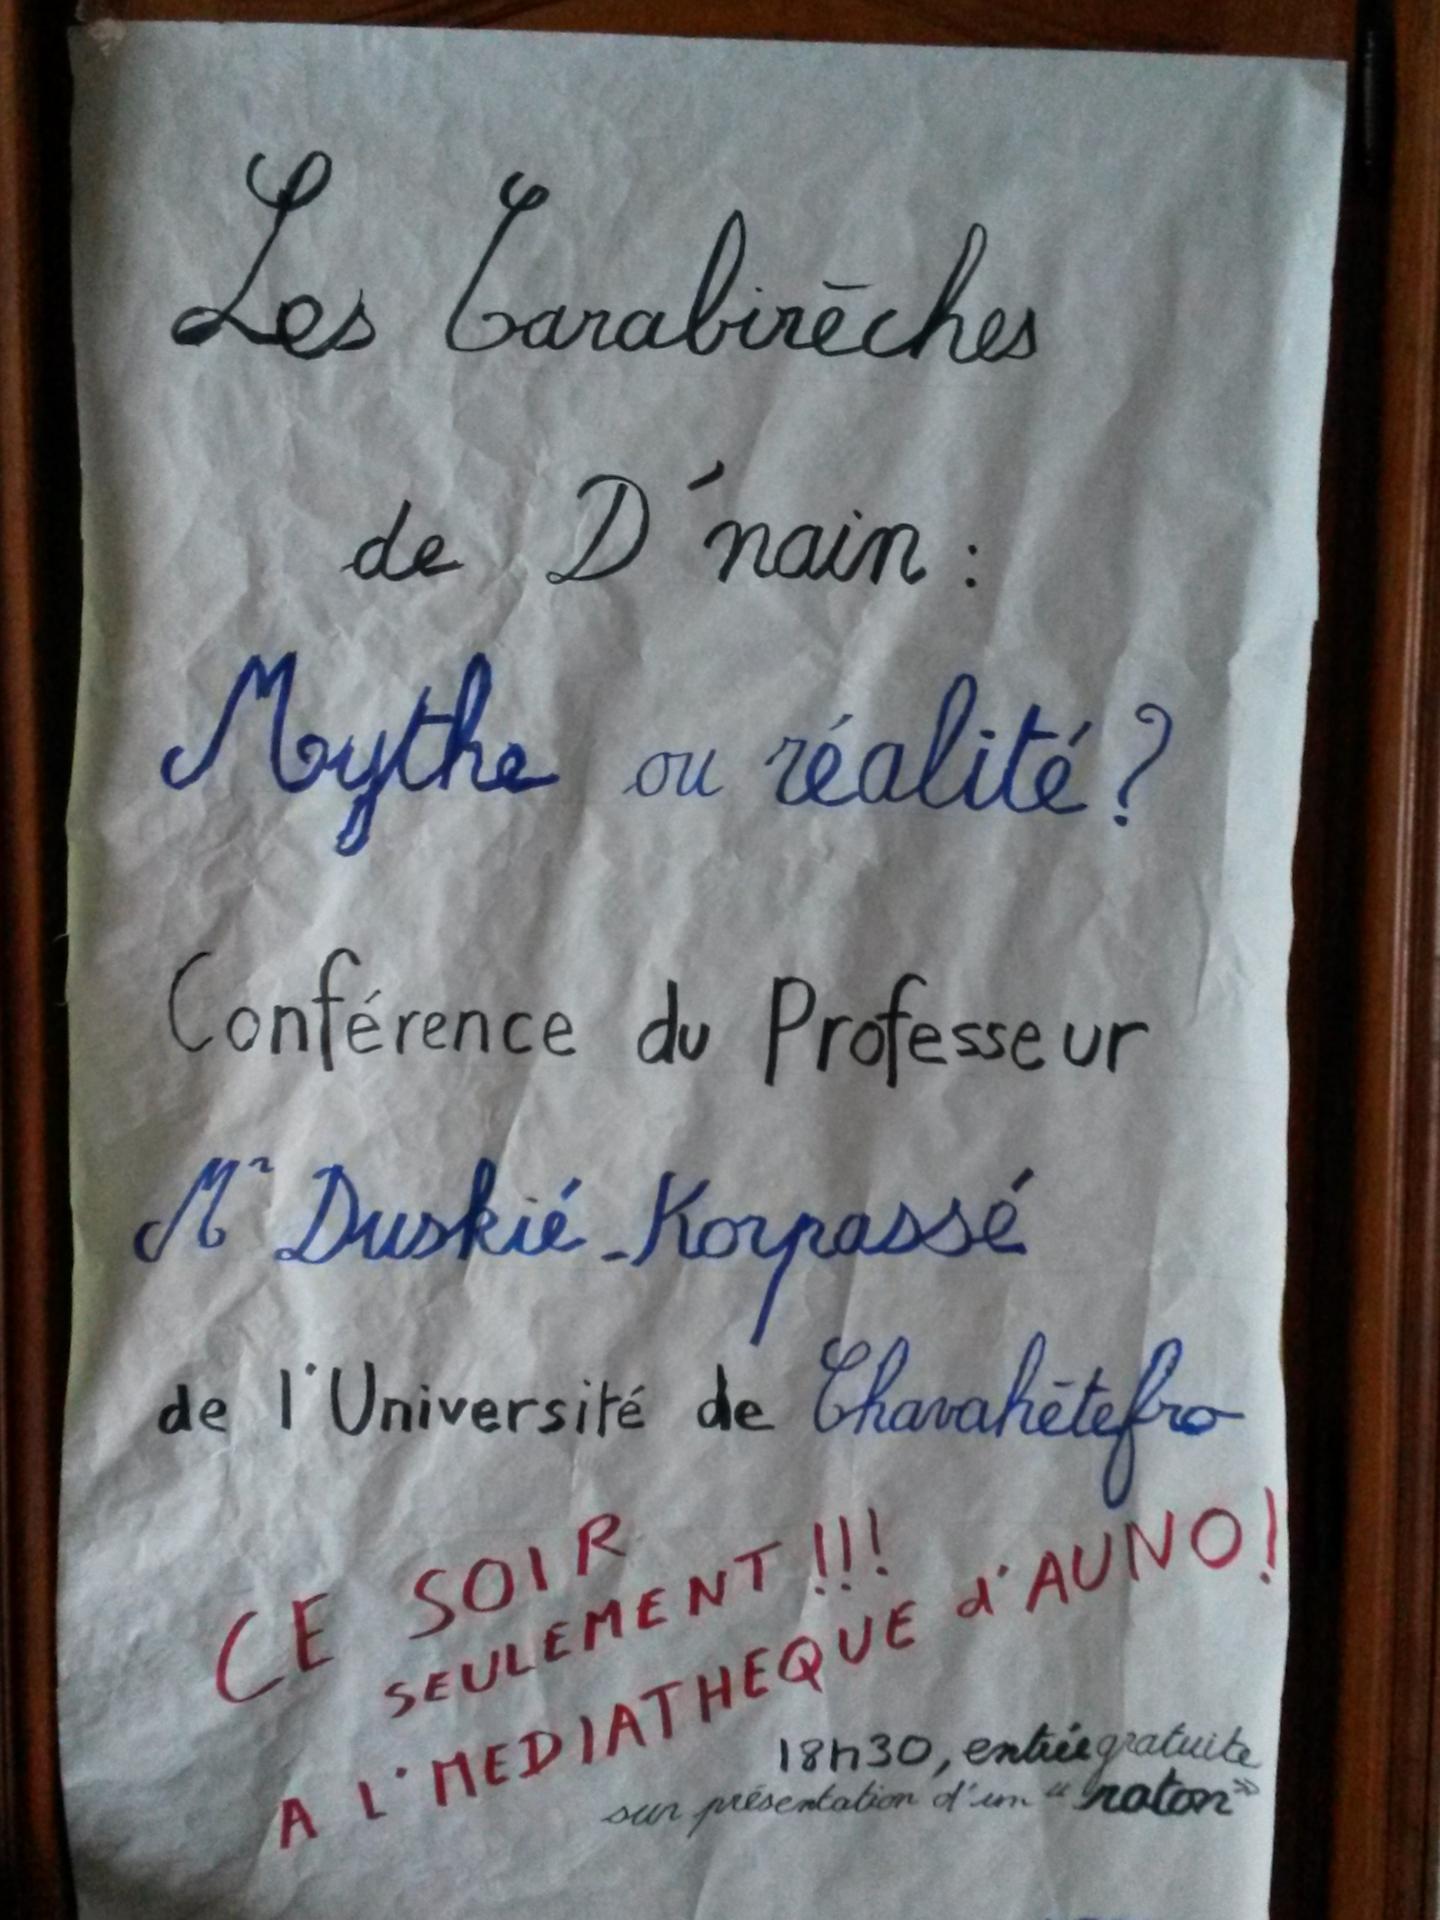 Les Tarabirèches
de D'nain :
Mythe ou réalité ?
Conférence du Professeur
Mr Duskié-Korpassé
de l'Université de Chavahêtefro
CE SOIR
SEULEMENT !!!
A L'MEDIATHEQUE d'AUNO !
18h30, entrée gratuite
sur présentation d'un "raton"